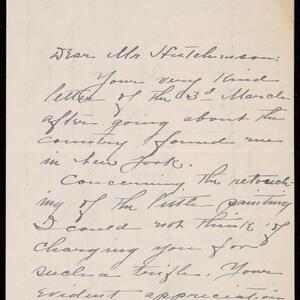 Dear Mr. Hutchinson:
Your very kind
letter of the 3d March
after going about the
country found me
in New York.
Concerning the retouch-
ing of the little painting
I could not think of
charging you for
such a trifle. Your
evident appreciation